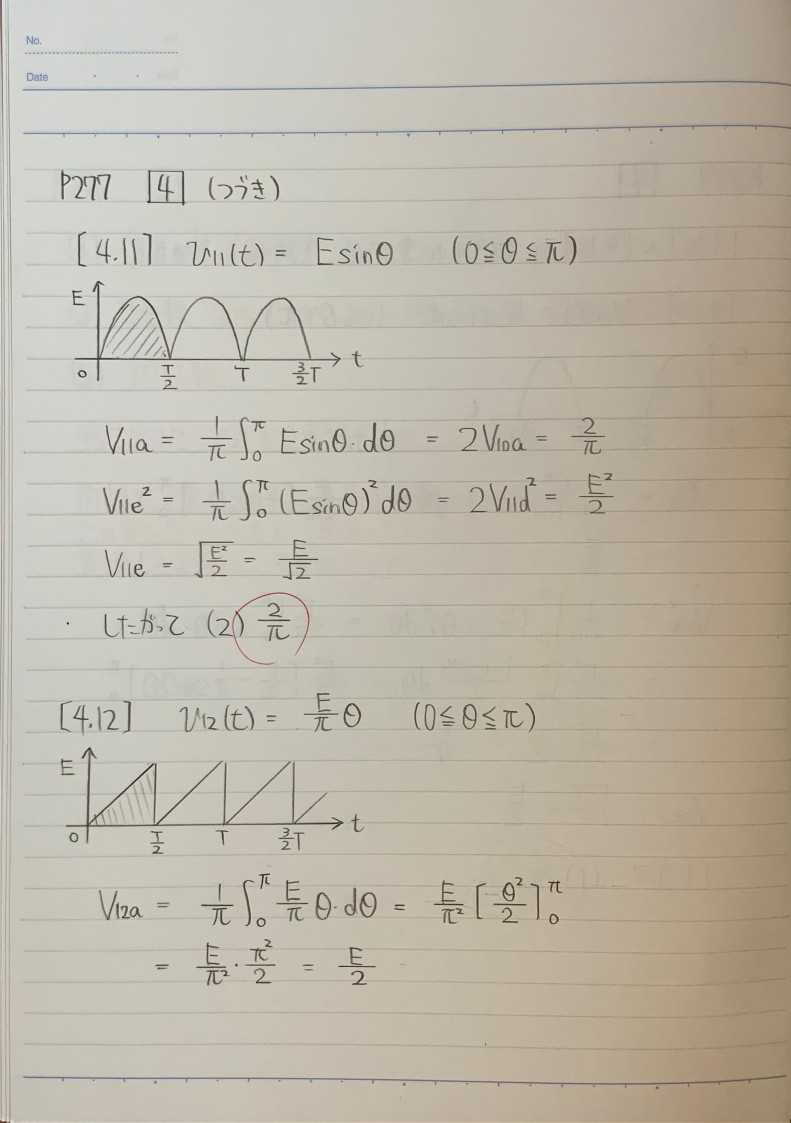 No.
Date
P277 [4] (つづき)
[4.11] v11(t) = E sinθ (0≦θ≦π)
E
0 T/2 T 3/2T t
V11a = 1/π ∫0^π E sinθ・dθ = 2V10a = 2/π
V11e² = 1/π ∫0^π (E sinθ)² dθ = 2V11d² = E²/2
V11e = √(E²/2) = E/√2
・ したがって (2) 2/π
[4.12] v12(t) = E/π θ (0≦θ≦π)
E
0 T/2 T 3/2T t
V12a = 1/π ∫0^π E/π θ・dθ = E/π² [θ²/2]0^π
= E/π² · π²/2 = E/2